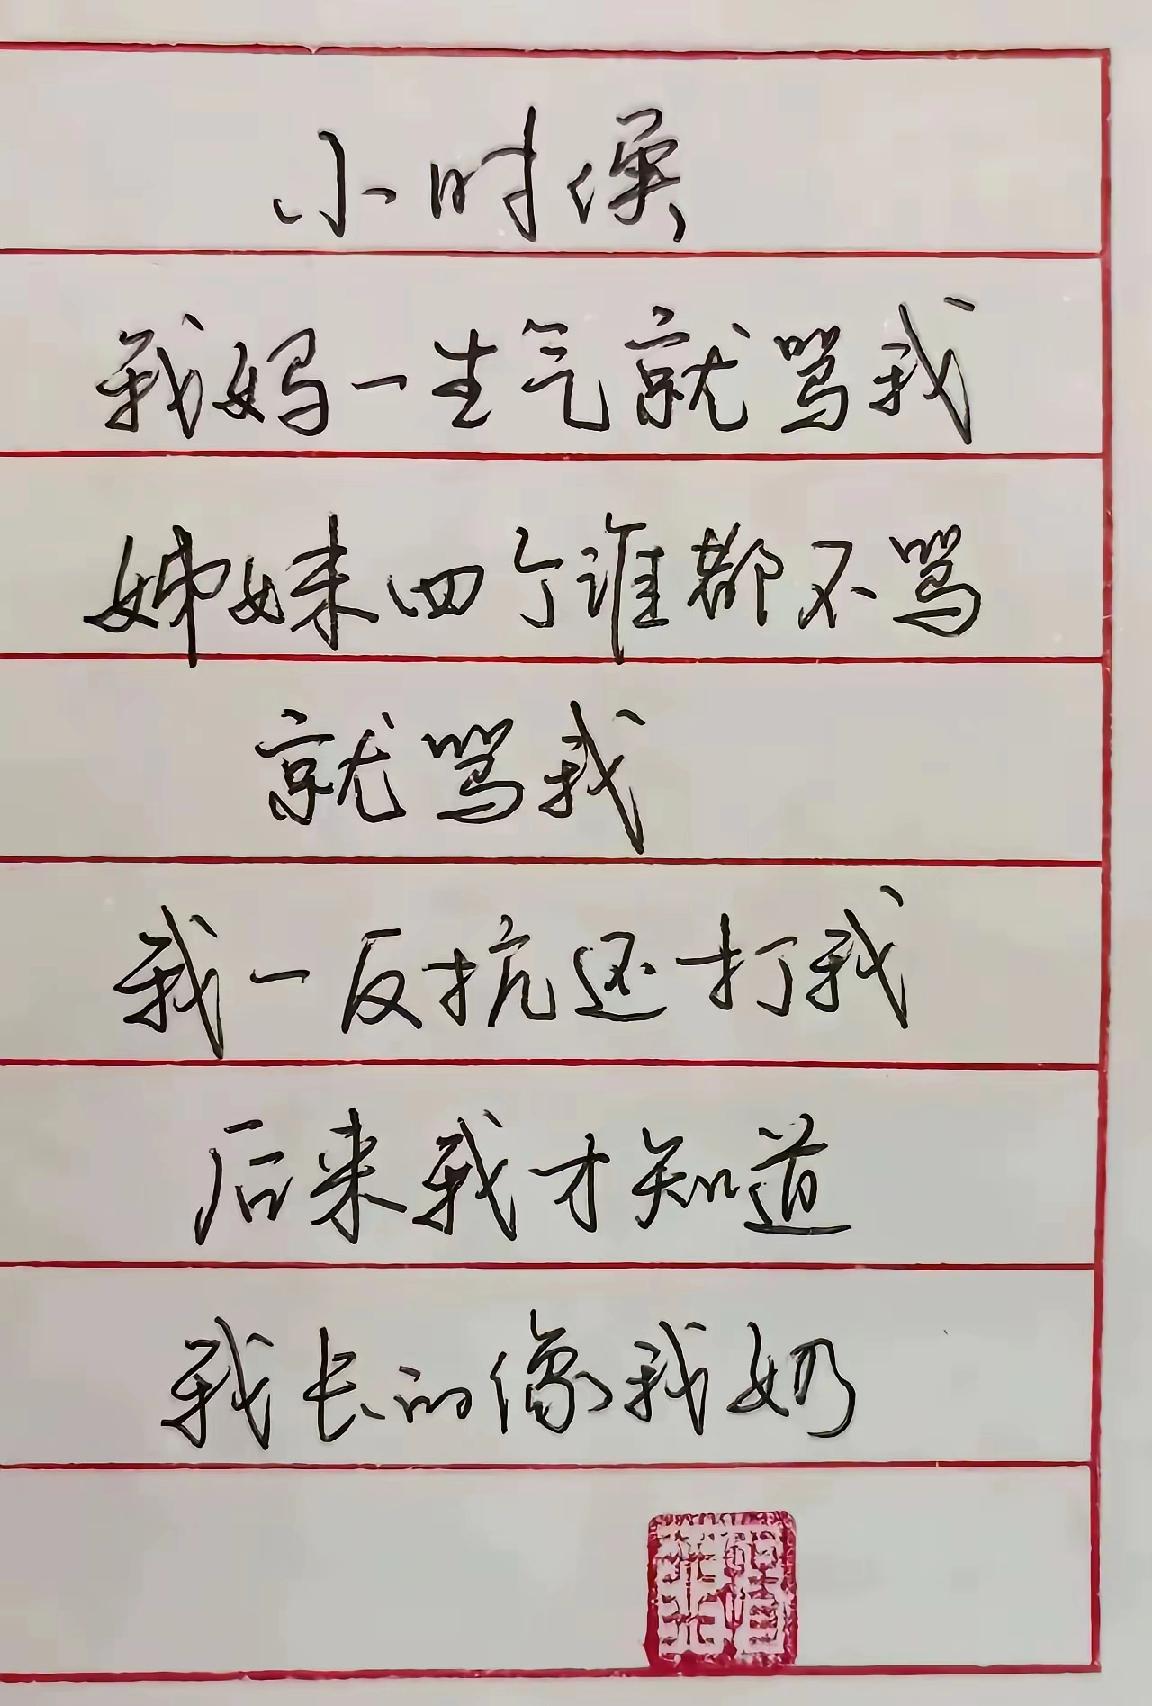 小时候
我妈一生气就骂我
姊妹四个谁都不骂
就骂我
我一反抗还打我
后来我才知道
我长的像我奶